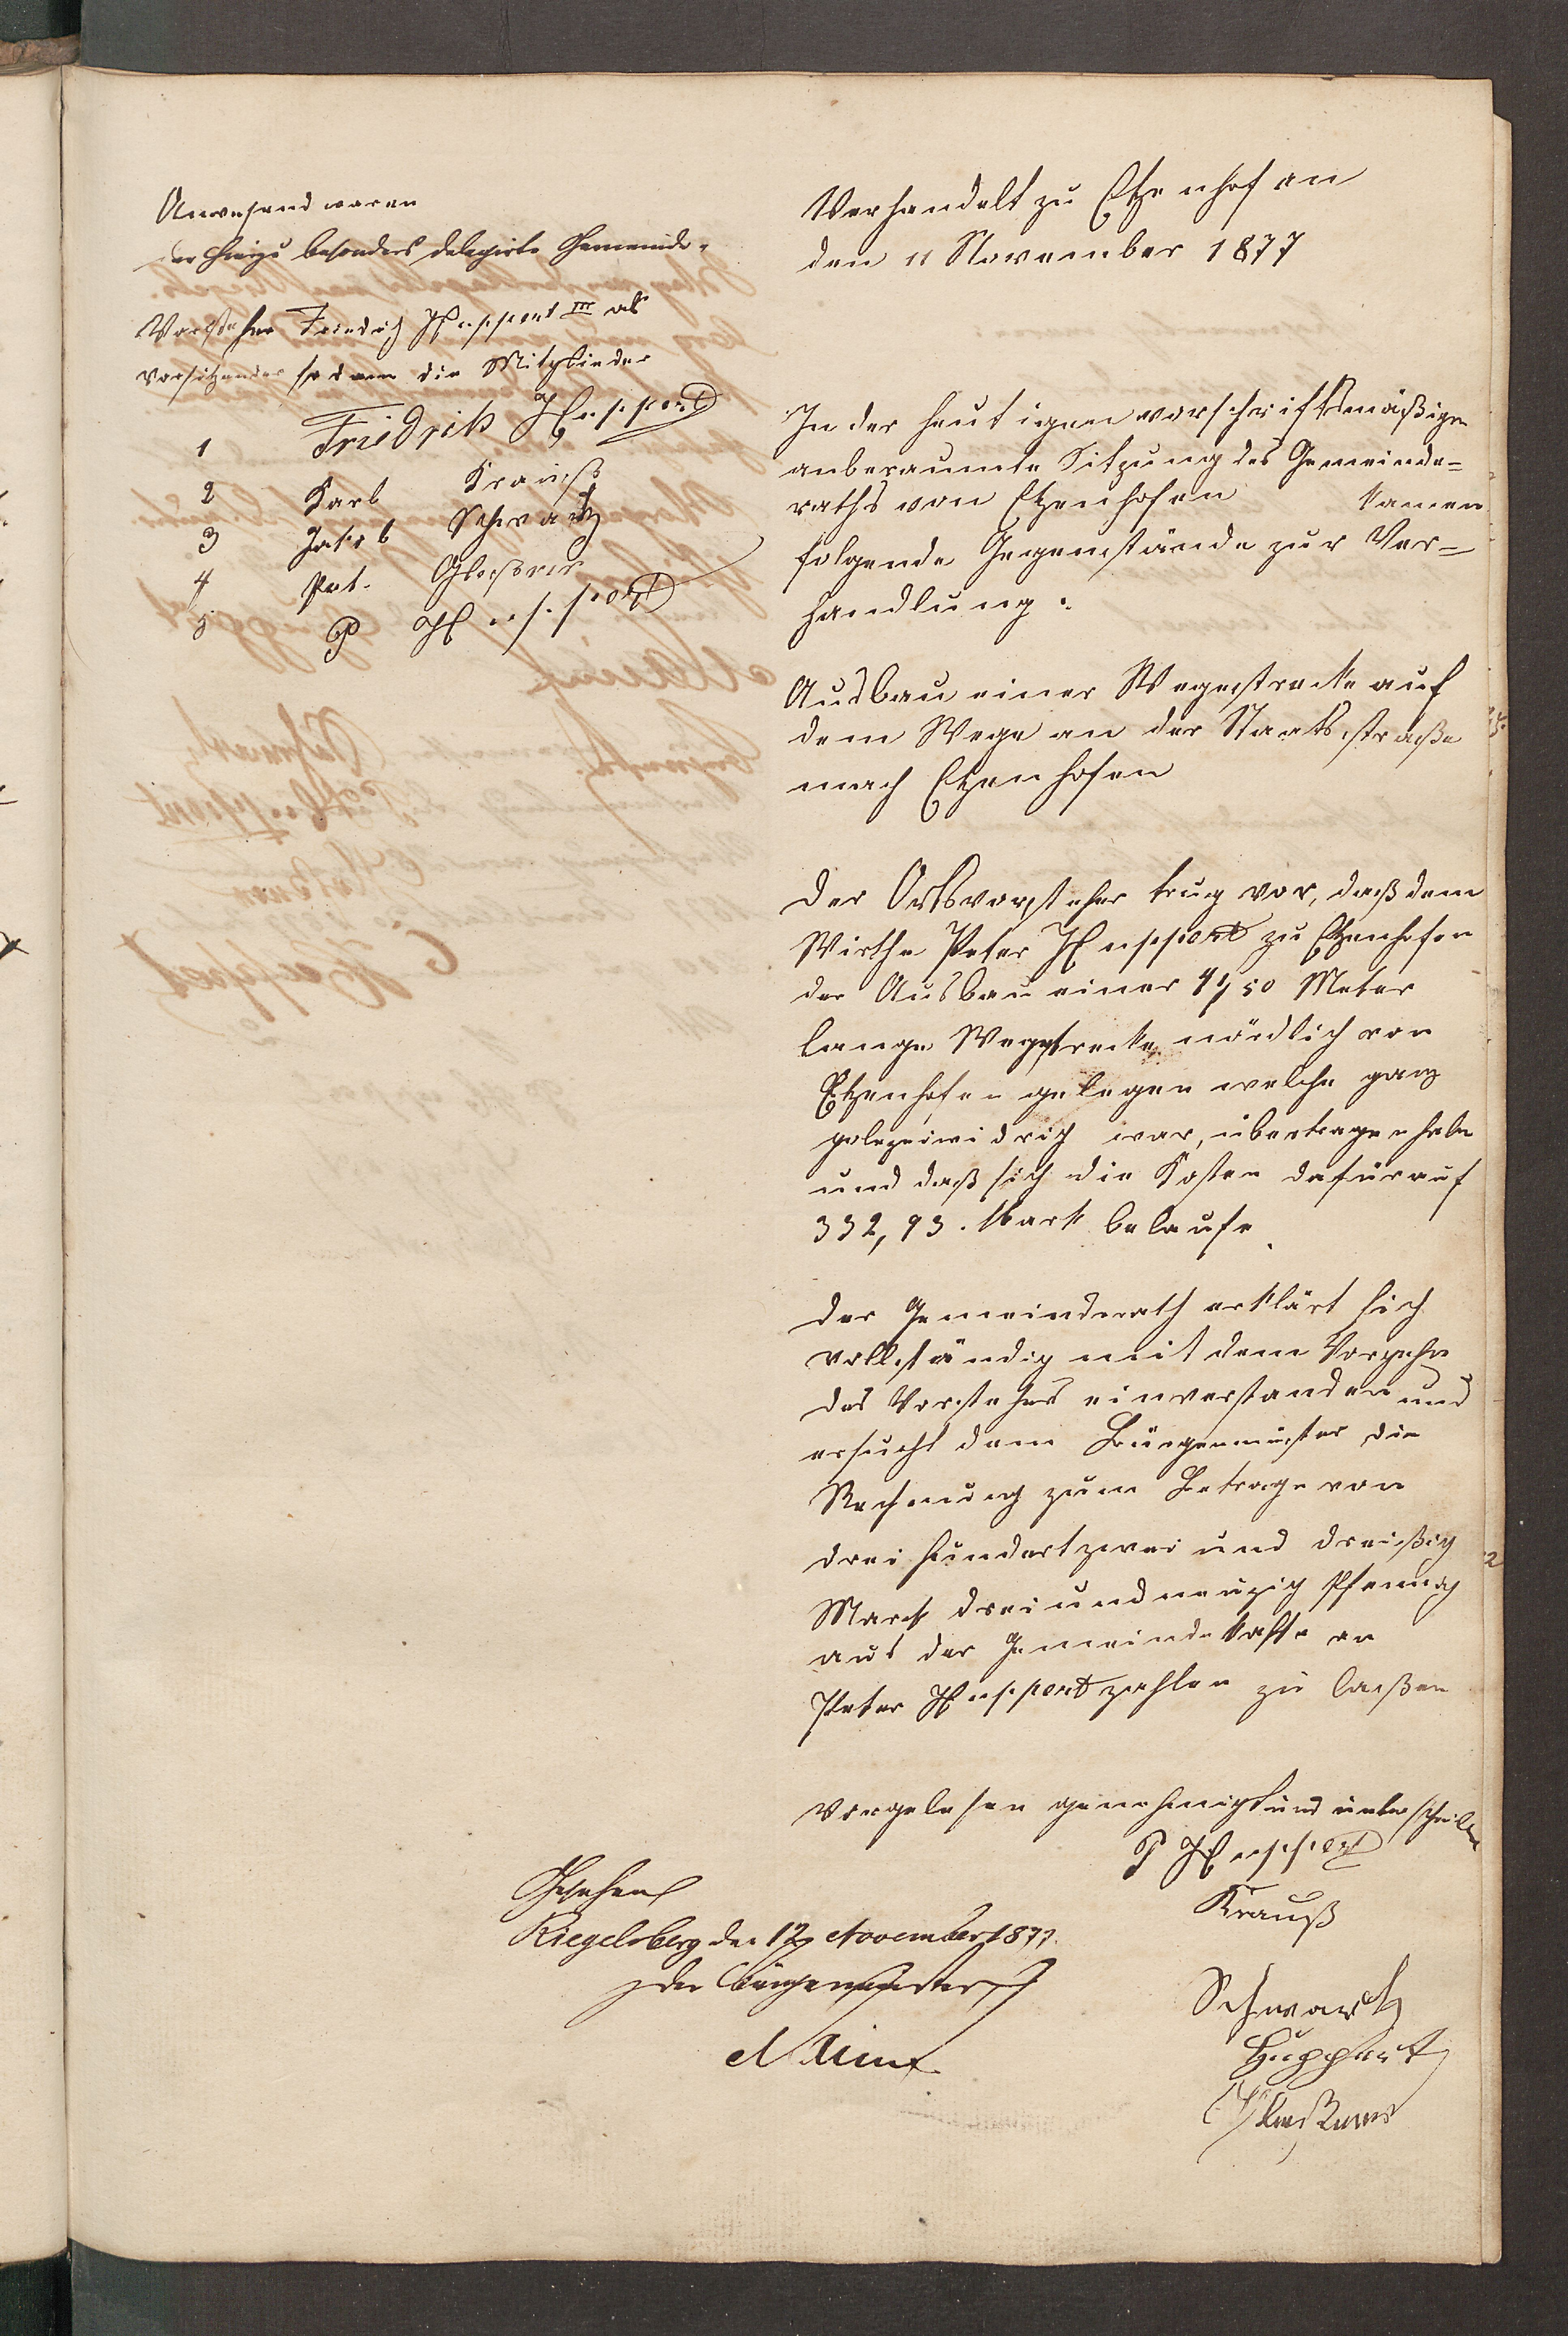 Anwesend waren
der hiezu besonders delegirte Gemeinde-
Vorsteher Friedrich Huppert III als
Vorsitzender sodann die Mitglieder
1 Friedrich Huppert
2 Karl Krauß
3 Jakob Schwartz
4 Pet. Glaßner
5 P Huppert
Verhandelt zu Etzenhofen
den 11 November 1877
In der heutigen vorschriftsmäßigen
anberaumte Sitzung des Gemeinde=
raths von Etzenhofen kamen
folgende Gegenstände zur Ver=
handlung:
Ausbau einer Wegestrecke auf
dem Wege an der Staatsstraße
nach Etzenhofen
Der Ortsvorsteher trug vor, daß dem
Wirthe Peter Huppert zu Etzenhofen
der Ausbau einer 50 Meter
lange Wegstrecke nördlich von
Etzenhofen gelegen welche ganz
polizeiwidrig war, übertragen habe
und daß sich die Kosten dafür auf
332,93. Mark belaufe.
Der Gemeinderath erklärt sich
vollständig mit dem Vorgehen
des Vorstehers einverstanden und
ersucht dem Bürgermeister die
Rechnung zum Betrage von
dreihundertzwei und dreißig
Mark dreiundneuzig Pfennig
aus der Gemeindekasse an
Peter Huppert zahlen zu laßen
Vorgelesen genehmigt und unterschrieben
P Huppert
Krauß
Schwartz
Huppert
Glaßner
Gesehen
Riegelsberg den 12 November 1877.
Der Bürgermeister